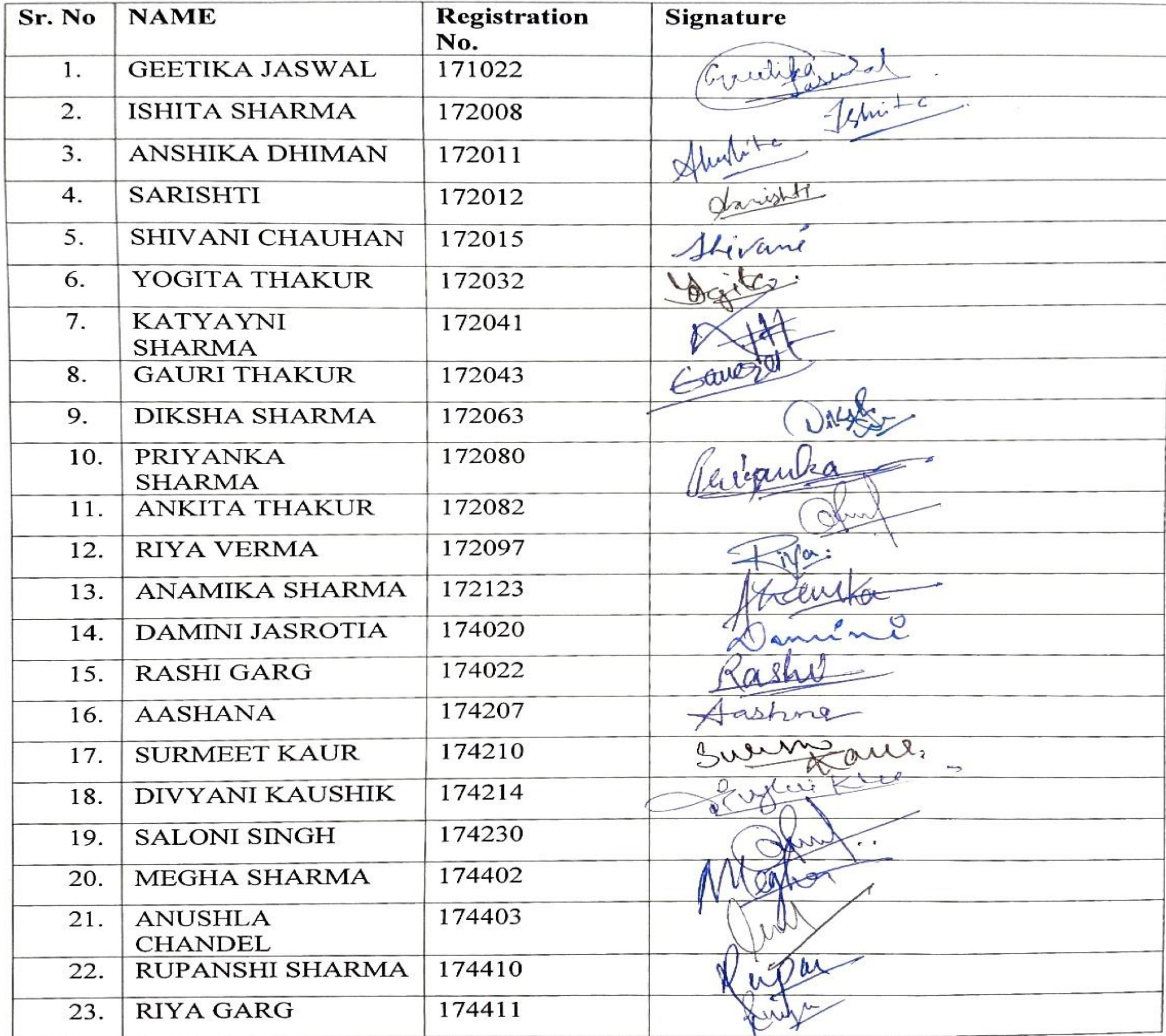 Sr. No NAME Registration Signature
No.
1. GEETIKA JASWAL 171022 Geetika Jaswal
2. ISHITA SHARMA 172008 Ishita
3. ANSHIKA DHIMAN 172011
4. SARISHTI 172012 Sarishti
5. SHIVANI CHAUHAN 172015 Shivani
6. YOGITA THAKUR 172032 Yogita
7. KATYAYNI 172041
SHARMA
8. GAURI THAKUR 172043
9. DIKSHA SHARMA 172063
10. PRIYANKA 172080 Priyanka
SHARMA
11. ANKITA THAKUR 172082
12. RIYA VERMA 172097 Riya.
13. ANAMIKA SHARMA 172123
14. DAMINI JASROTIA 174020 Damini
15. RASHI GARG 174022 Rashi
16. AASHANA 174207 Aashna
17. SURMEET KAUR 174210
18. DIVYANI KAUSHIK 174214
19. SALONI SINGH 174230
20. MEGHA SHARMA 174402 Megha
21. ANUSHLA 174403
CHANDEL
22. RUPANSHI SHARMA 174410
23. RIYA GARG 174411